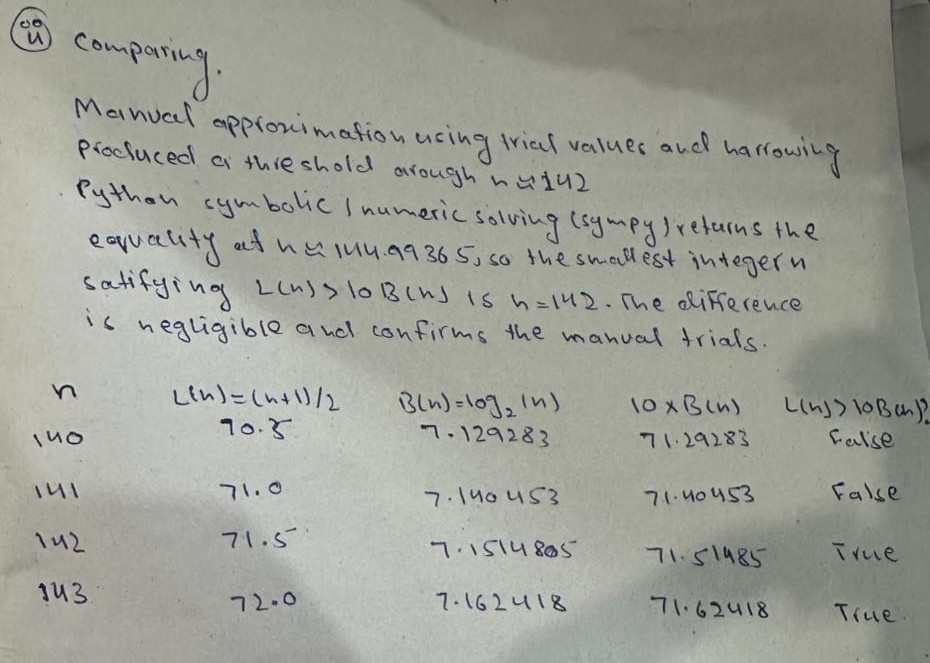 (iii) Comparing.
Manual approximation using trial values and narrowing
produced a threshold arough n ≈ 142
Python symbolic / numeric solving (sympy) returns the
equality at n ≈ 144.99365, so the smallest integer n
satifying L(n) > 10B(n) is n=142. The difference
is negligible and confirms the manual trials.
n L(n)=(n+1)/2 B(n)=log₂(n) 10×B(n) L(n)>10B(n)?
140 70.5 7.129283 71.29283 False
141 71.0 7.140453 71.40453 False
142 71.5 7.1514805 71.51485 True
143 72.0 7.162418 71.62418 True.